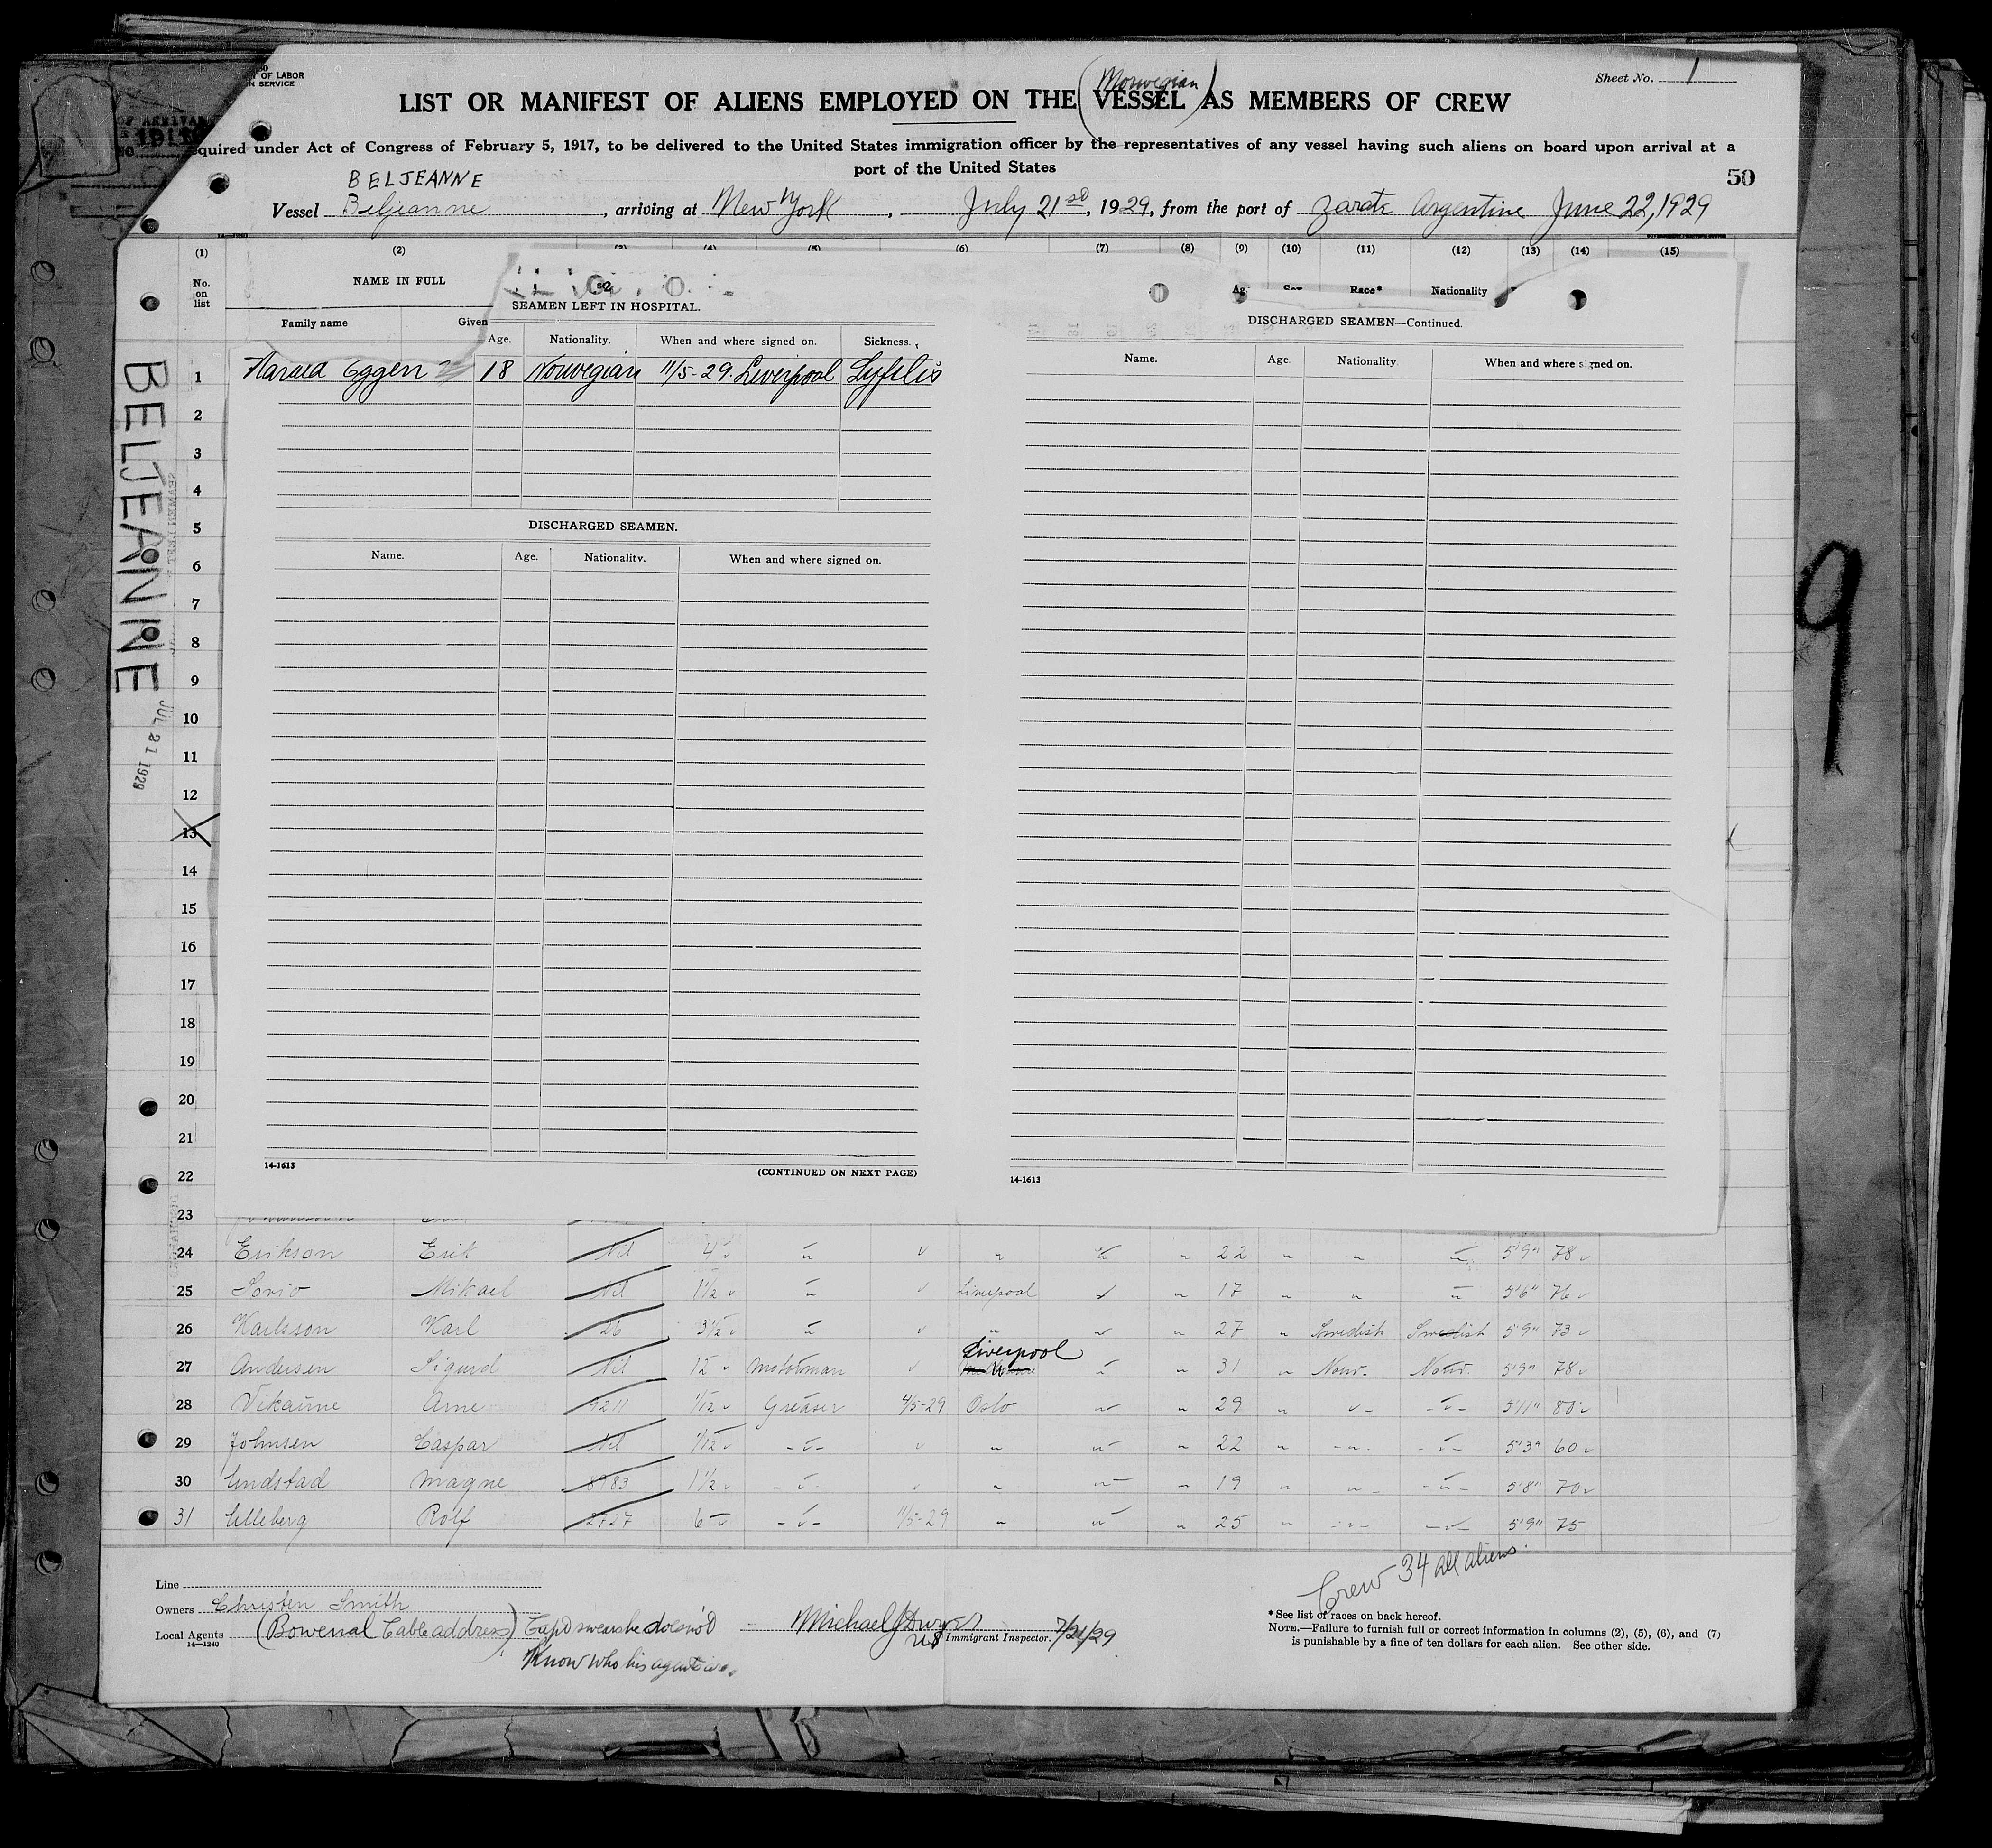 OF LABOR
N SERVICE
Sheet No. 1
(Norwegian)
LIST OR MANIFEST OF ALIENS EMPLOYED ON THE VESSEL AS MEMBERS OF CREW
quired under Act of Congress of February 5, 1917, to be delivered to the United States immigration officer by the representatives of any vessel having such aliens on board upon arrival at a
port of the United States
50
BELJEANNE
Vessel Beljeanne, arriving at New York, July 21st, 1929, from the port of Zarate Argentine June 22, 1929
(1) (2) (3) (4) (5) (6) (7) (8) (9) (10) (11) (12) (13) (14) (15)
No. on list
NAME IN FULL
Family name Given
Ag Sex Race* Nationality
SEAMEN LEFT IN HOSPITAL.
Age. Nationality. When and where signed on. Sickness.
Harald Eggen 18 Norwegian 11/5-29. Liverpool Syfilis
DISCHARGED SEAMEN.
Name. Age. Nationality. When and where signed on.
14-1613
(CONTINUED ON NEXT PAGE)
DISCHARGED SEAMEN—Continued.
Name. Age. Nationality When and where signed on.
14-1613
BELJEANNE
JUL 21 1929
1
2
3
4
5
6
7
8
9
10
11
12
13
14
15
16
17
18
19
20
21
22
23
24 Erikson Erik Nil 4 " " " " 22 " " " 5'9" 78
25 Mikael Nil 1 1/2 " Liverpool " " 17 " " " 5'6" 76
26 Karlsson Karl 26 3 1/2 " " " " 27 " Swedish Swedish 5'9" 73
27 Andersen Sigurd Nil 12 Motorman Liverpool " " 31 " Norw. Norw. 5'9" 78
28 Arne 9211 1/12 Greaser 4/5-29 Oslo " " 29 " " -"- 5'11" 80
29 Johnsen Caspar Nil 1/12 -"- " " " 22 " -"- -"- 5'3" 60
30 Undstad Magne 8983 1 1/2 -"- " " " 19 " " -"- 5'8" 70
31 Ulleberg Rolf 2727 6 -"- 11/5-29 " " " 25 " -"- -"- 5'9" 75
Crew 34 all aliens.
Line
Owners Christen Smith
Local Agents (Bowenal Cable address) Capt swears he doesn't
Know who his agents is.
14-1240
Michael J Dwyer
US Immigrant Inspector. 7/21/29
*See list of races on back hereof.
NOTE.—Failure to furnish full or correct information in columns (2), (5), (6), and (7)
is punishable by a fine of ten dollars for each alien. See other side.
9